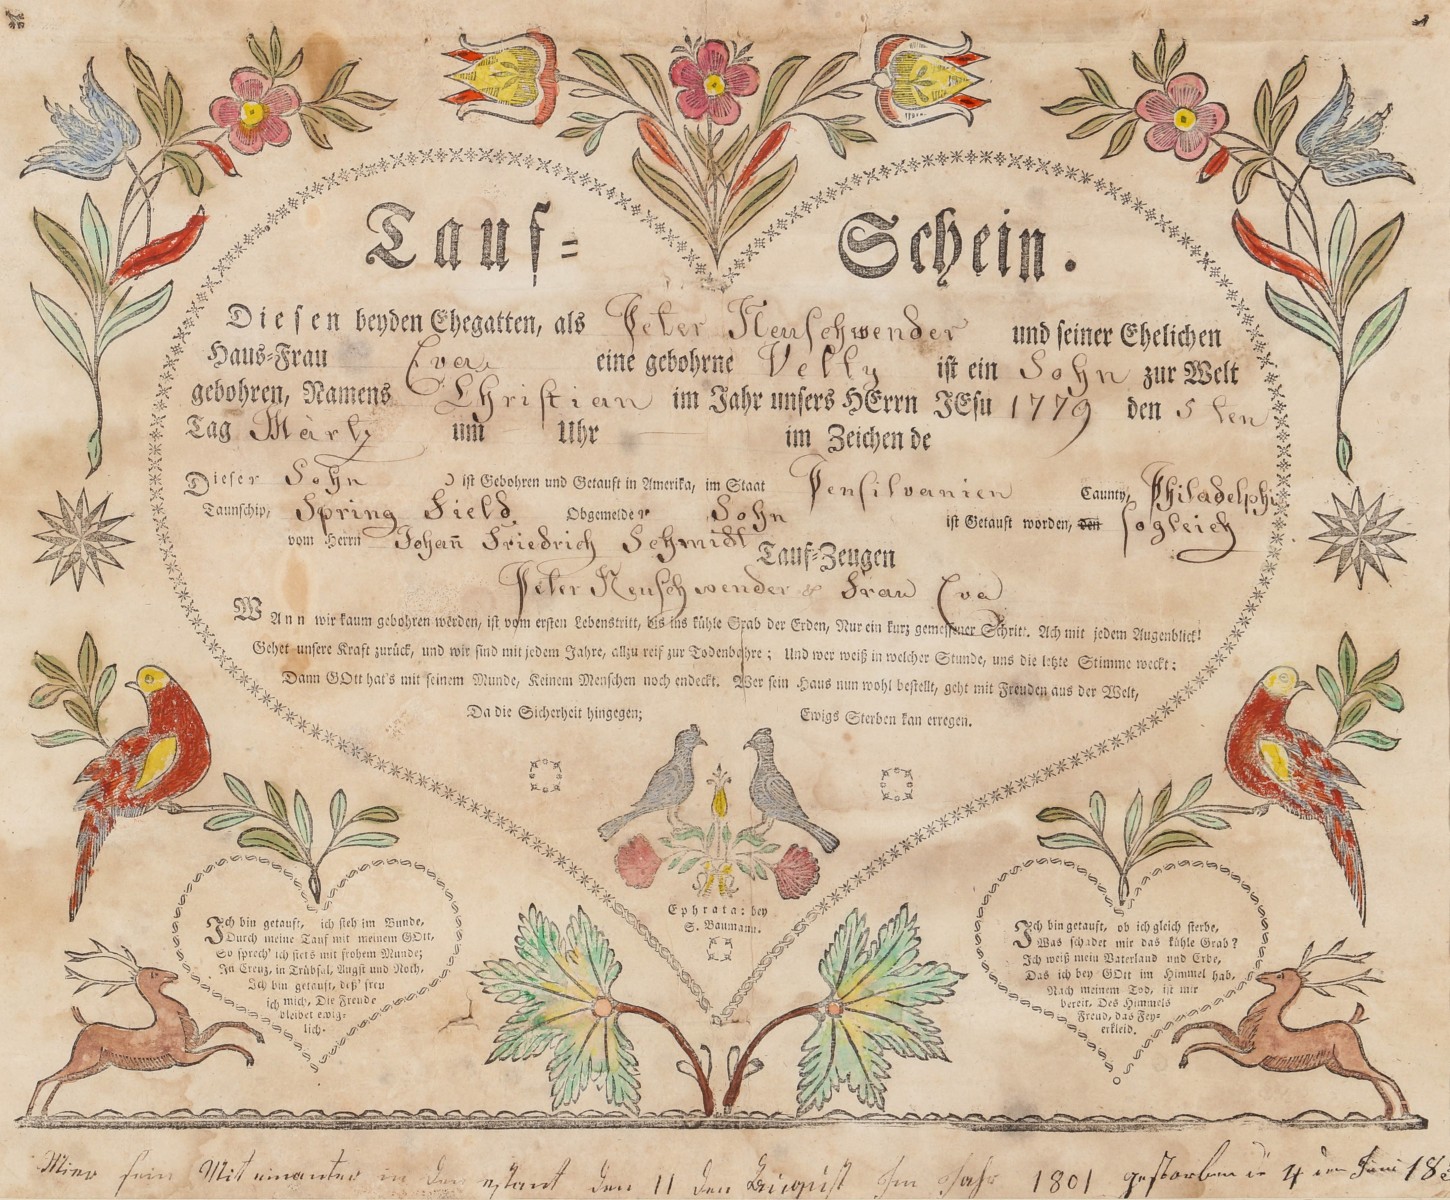 Tauf= Schein.
Diesen beyden Ehegatten, als Peter Neuschwender und seiner Ehelichen
Haus=Frau Eva eine gebohrne Velly ist ein Sohn zur Welt
gebohren, Namens Christian im Jahr unsers HErrn JEsu 1779 den 5 ten
Tag Märtz um Uhr im Zeichen de
Dieser Sohn ist Gebohren und Getauft in Amerika, im Staat Pensilvanien Caunty, Philadelphi
Taunschip, Spring Field Obgemelder Sohn ist Getauft worden, den sogleich
vom Herrn Johan̄ Friedrich Schmidt Tauf=Zeugen
Peter Neuschwender & Frau Eva
WAnn wir kaum gebohren werden, ist vom ersten Lebenstritt, bis ins kühle Grab der Erden, Nur ein kurz gemessener Schritt. Ach mit jedem Augenblick!
Gehet unsere Kraft zurück, und wir sind mit jedem Jahre, allzu reif zur Todenbahre; Und wer weiß in welcher Stunde, uns die letzte Stimme weckt:
Dann GOtt hat's mit seinem Munde, Keinem Menschen noch endeckt. Wer sein Haus nun wohl bestellt, geht mit Freuden aus der Welt,
Da die Sicherheit hingegen; Ewigs Sterben kan erregen.
Ephrata: bey
S. Baumann.
Ich bin getauft, ich steh im Bunde,
Durch meine Tauf mit meinem GOtt,
So sprech' ich stets mit frohem Munde;
In Creuz, in Trübsal, Angst und Noth,
Ich bin getauft, deß' freu
ich mich, Die Freude
bleibet ewig-
lich.
Ich bin getauft, ob ich gleich sterbe,
Was schadet mir das kühle Grab?
Ich weiß mein Vaterland und Erbe,
Das ich bey GOtt im Himmel hab,
Nach meinem Tod, ist mir
bereit, Des Himmels
Freud, das Fey-
erkleid.
Mier sein Miteinanter in den estant den 11 den August Im Jahr 1801 gestorben 4 den Juni 18